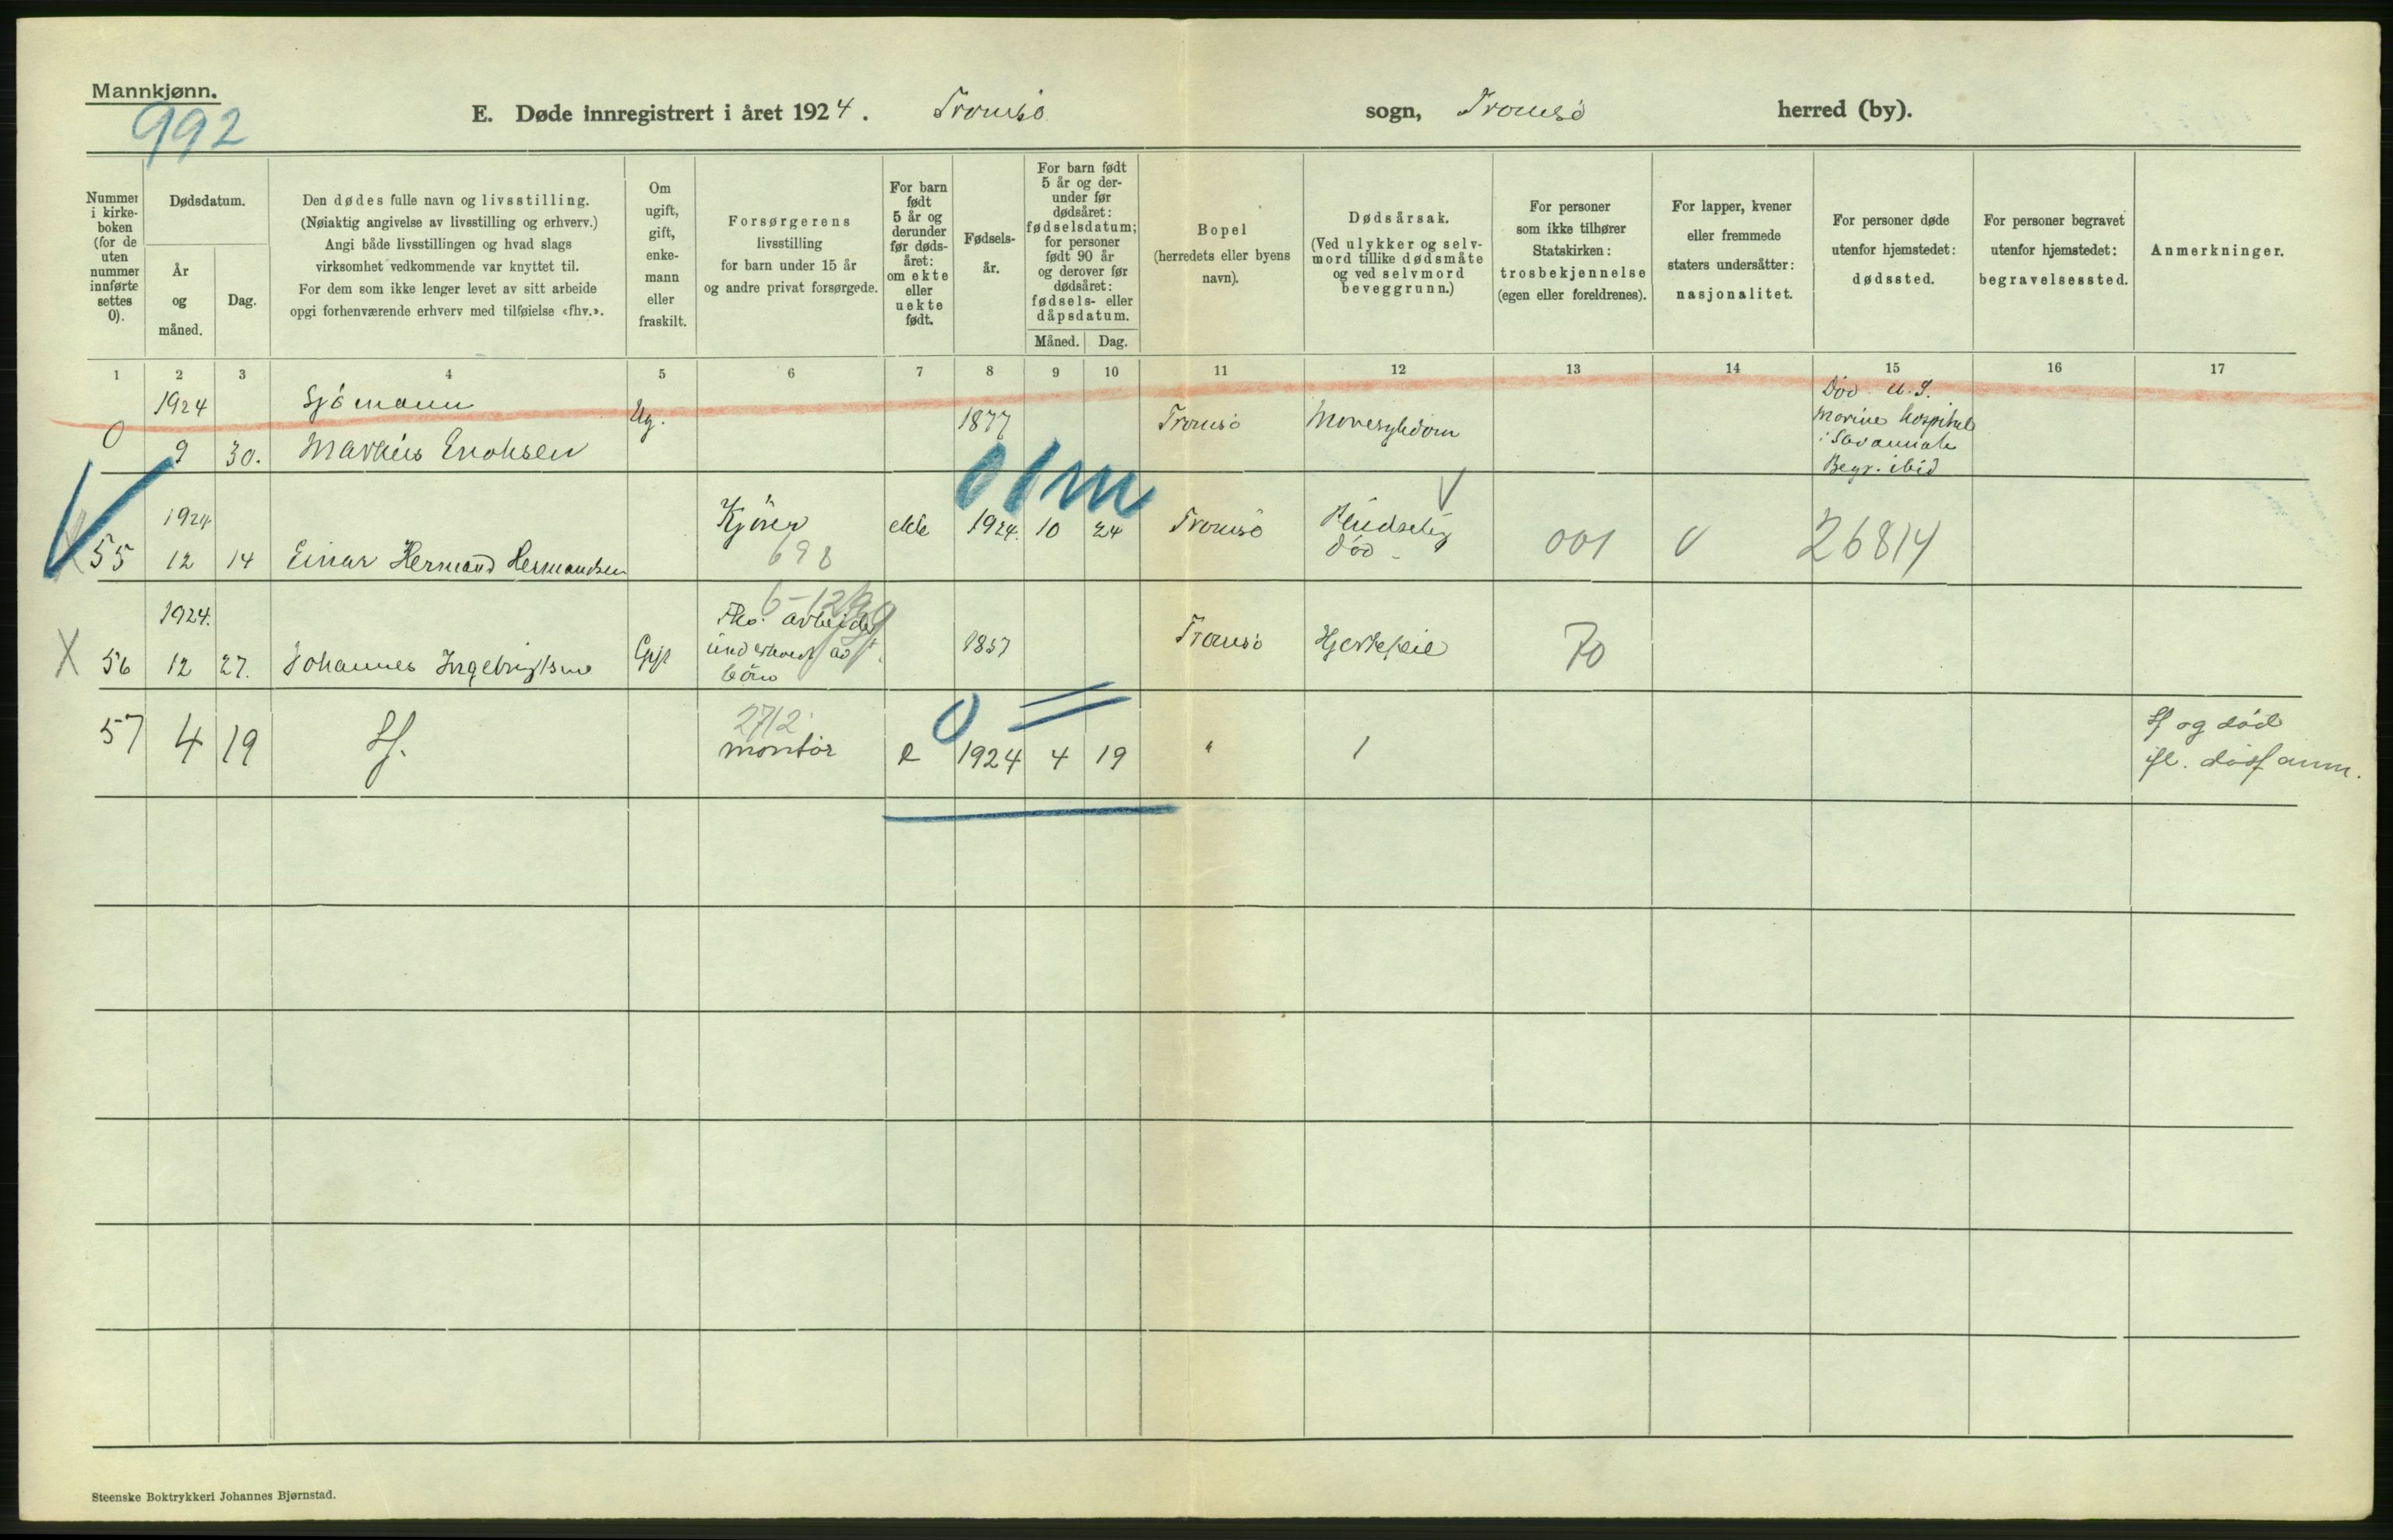 Mannkjønn.
992
E. Døde innregistrert i året 1924. Tromsö sogn, Tromsö herred (by).
Nummer i kirkeboken (for de uten nummer innførte settes 0).
Dødsdatum.
År og måned.
Dag.
Den dødes fulle navn og livsstilling.
(Nøiaktig angivelse av livsstilling og erhverv.)
Angi både livsstillingen og hvad slags
virksomhet vedkommende var knyttet til.
For dem som ikke lenger levet av sitt arbeide
opgi forhenværende erhverv med tilføielse «fhv.».
Om ugift, gift, enkemann eller fraskilt.
Forsørgerens
livsstilling
for barn under 15 år
og andre privat forsørgede.
For barn født 5 år og derunder før dødsåret: om ekte eller uekte født.
Fødselsår.
For barn født 5 år og derunder før dødsåret: fødselsdatum; for personer født 90 år og derover før dødsåret: fødsels- eller dåpsdatum.
Måned.
Dag.
Bopel
(herredets eller byens
navn).
Dødsårsak.
(Ved ulykker og selvmord tillike dødsmåte og ved selvmord beveggrunn.)
For personer
som ikke tilhører
Statskirken:
trosbekjennelse
(egen eller foreldrenes).
For lapper, kvener
eller fremmede
staters undersåtter:
nasjonalitet.
For personer døde
utenfor hjemstedet:
dødssted.
For personer begravet
utenfor hjemstedet:
begravelsessted.
Anmerkninger.
1 2 3 4 5 6 7 8 9 10 11 12 13 14 15 16 17
0 1924 9 30. Sjömann Markus Enoksen Ug. 1877 Tromsö Mavesykdom Död U.S. Marine hospital i Savannah Begr. ibid
01m
55 1924 12 14 Einar Hermand Hermandsen Kjörer 698 ekte 1924. 10 24 Tromsö Pludselig död - 001 26814
X 56 1924. 12 27. Johannes Ingebrigtsen Gift arbeider börn 1857 Tromsö Hjertefeil 70
57 4 19 2712 montör e 0 1924 4 19 " 1 og död